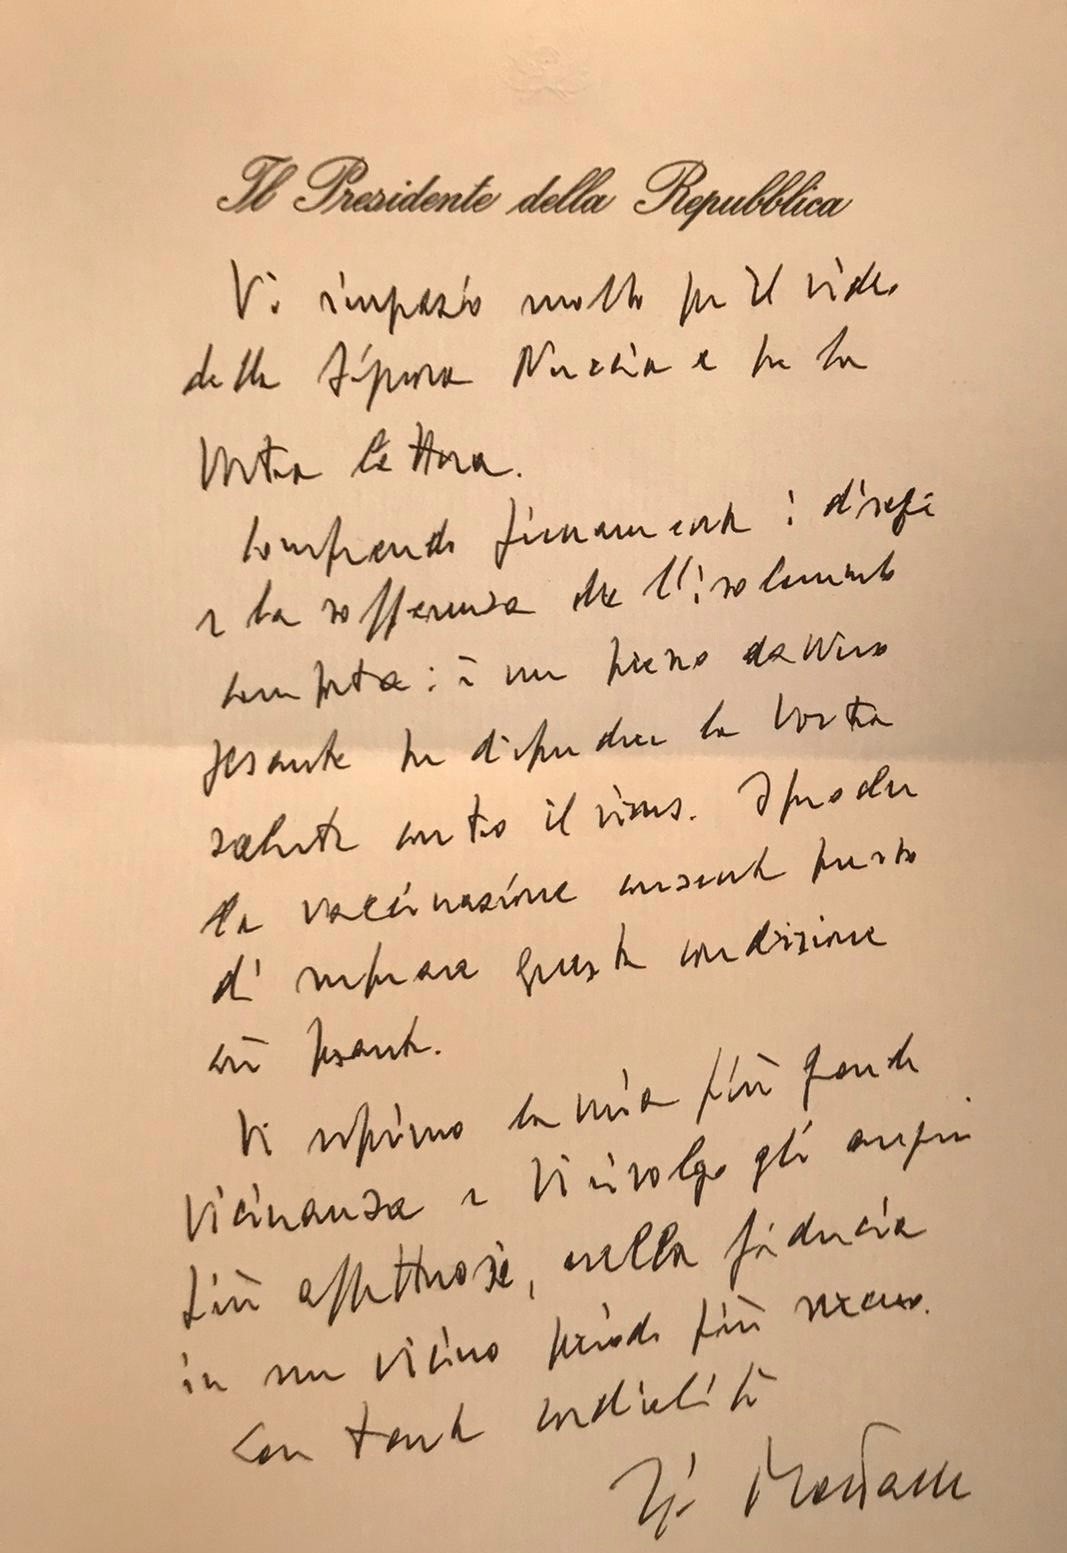 Il Presidente della Repubblica
Vi ringrazio molto per il video
della Signora Nuccia e per la
Vostra lettera.
Comprendo pienamente i disagi
e la sofferenza che l'isolamento
comporta: è un prezzo davvero
pesante per difendere la Vostra
salute contro il virus. Spero che
la vaccinazione consenta presto
di superare questa condizione
così pesante.
Vi esprimo la mia più grande
vicinanza e Vi rivolgo gli auguri
più affettuosi, nella fiducia
in un vicino periodo più sereno.
Con tanta cordialità
Mattarella